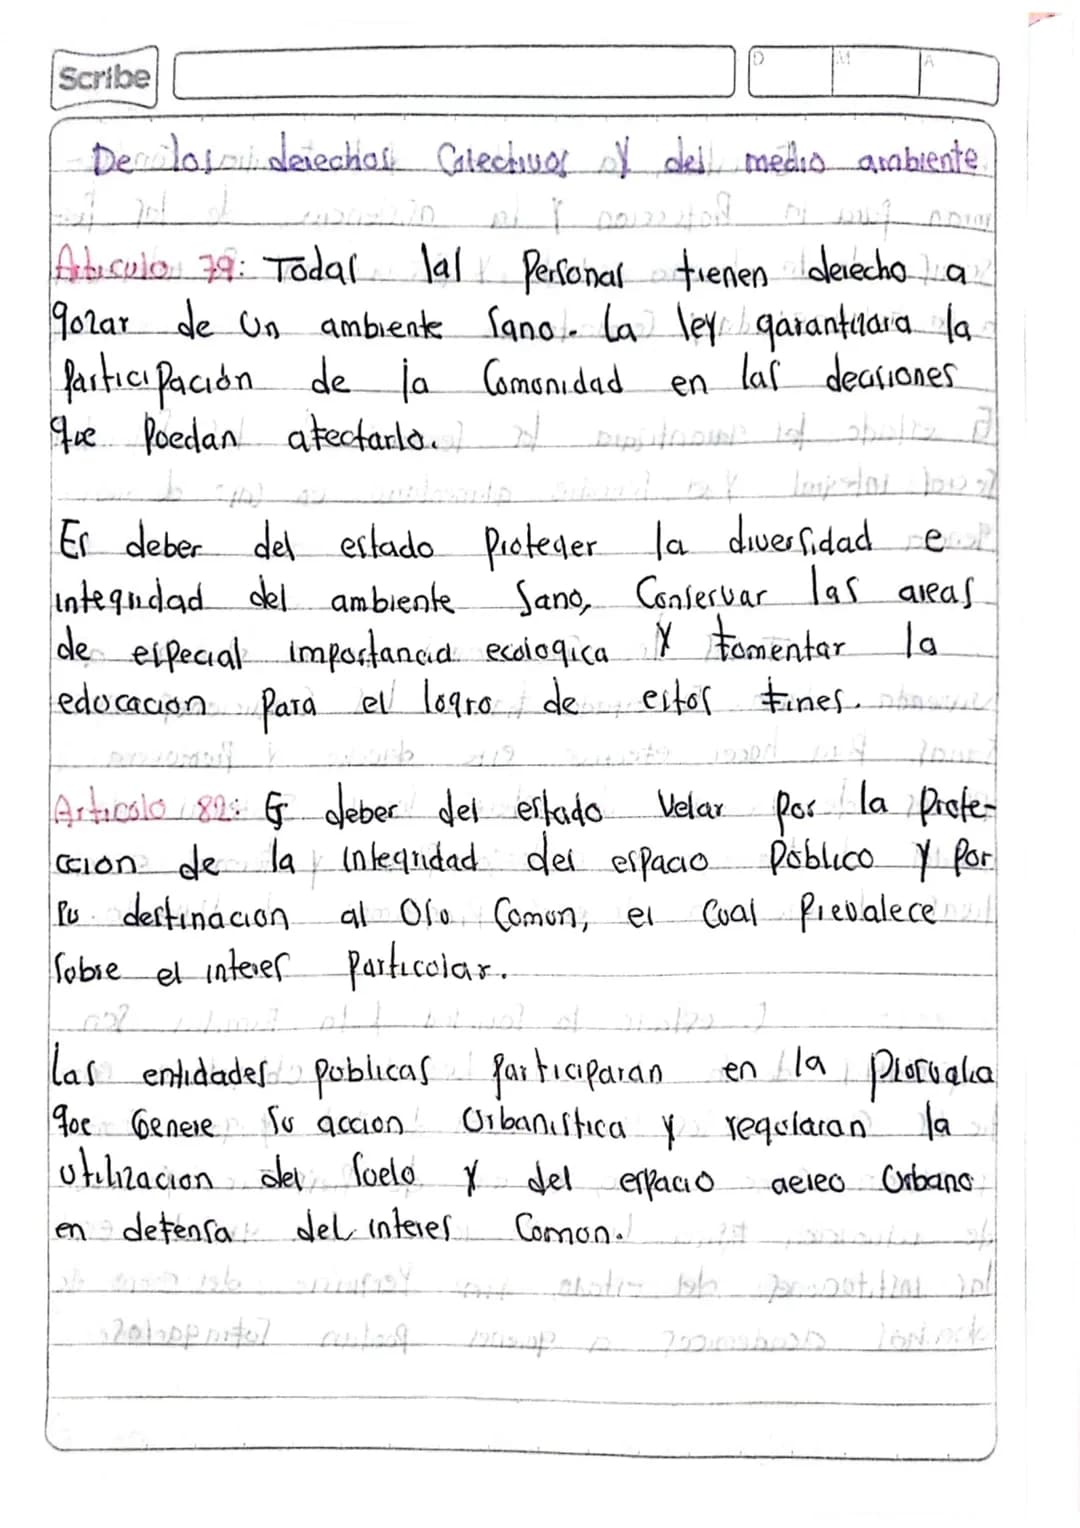 Scribe
D M A
De los derechos Colectivos y del medio ambiente
Articulo 79: Todas las Personas tienen derecho a
gozar de un ambiente sano. La ley garantizara la
Participación de la Comunidad en las decisiones
que Puedan afectarlo.
Es deber del estado Proteger la diversidad e
integridad del ambiente Sano, Conservar las areas
de especial importancia ecologica y fomentar la
educacion Para el logro de estos fines.
Articulo 82: Es deber del estado Velar por la Prote-
ccion de la integridad del espacio Público y Por
su destinacion al uso Comun, el Cual Prevalece
sobre el interes Particular.
Las entidades publicas Participaran en la Plusvalia
que Genere su accion Urbanistica y regularan la
utilizacion del suelo y del espacio aereo Urbano
en defensa del interes Comun.